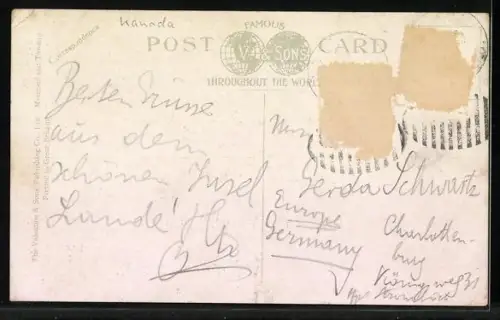 Kanada
Correspondence
FAMOUS
POST CARD
V & SONS
THROUGHOUT THE WORLD
The Valentine & Sons Publishing Co., Ltd. Montreal and Toronto
Printed in Great Britain
Besten Grüsse
aus dem
schönen Insel
Lande!
Gerda Schwartz
Europe
Germany
Charlottenburg